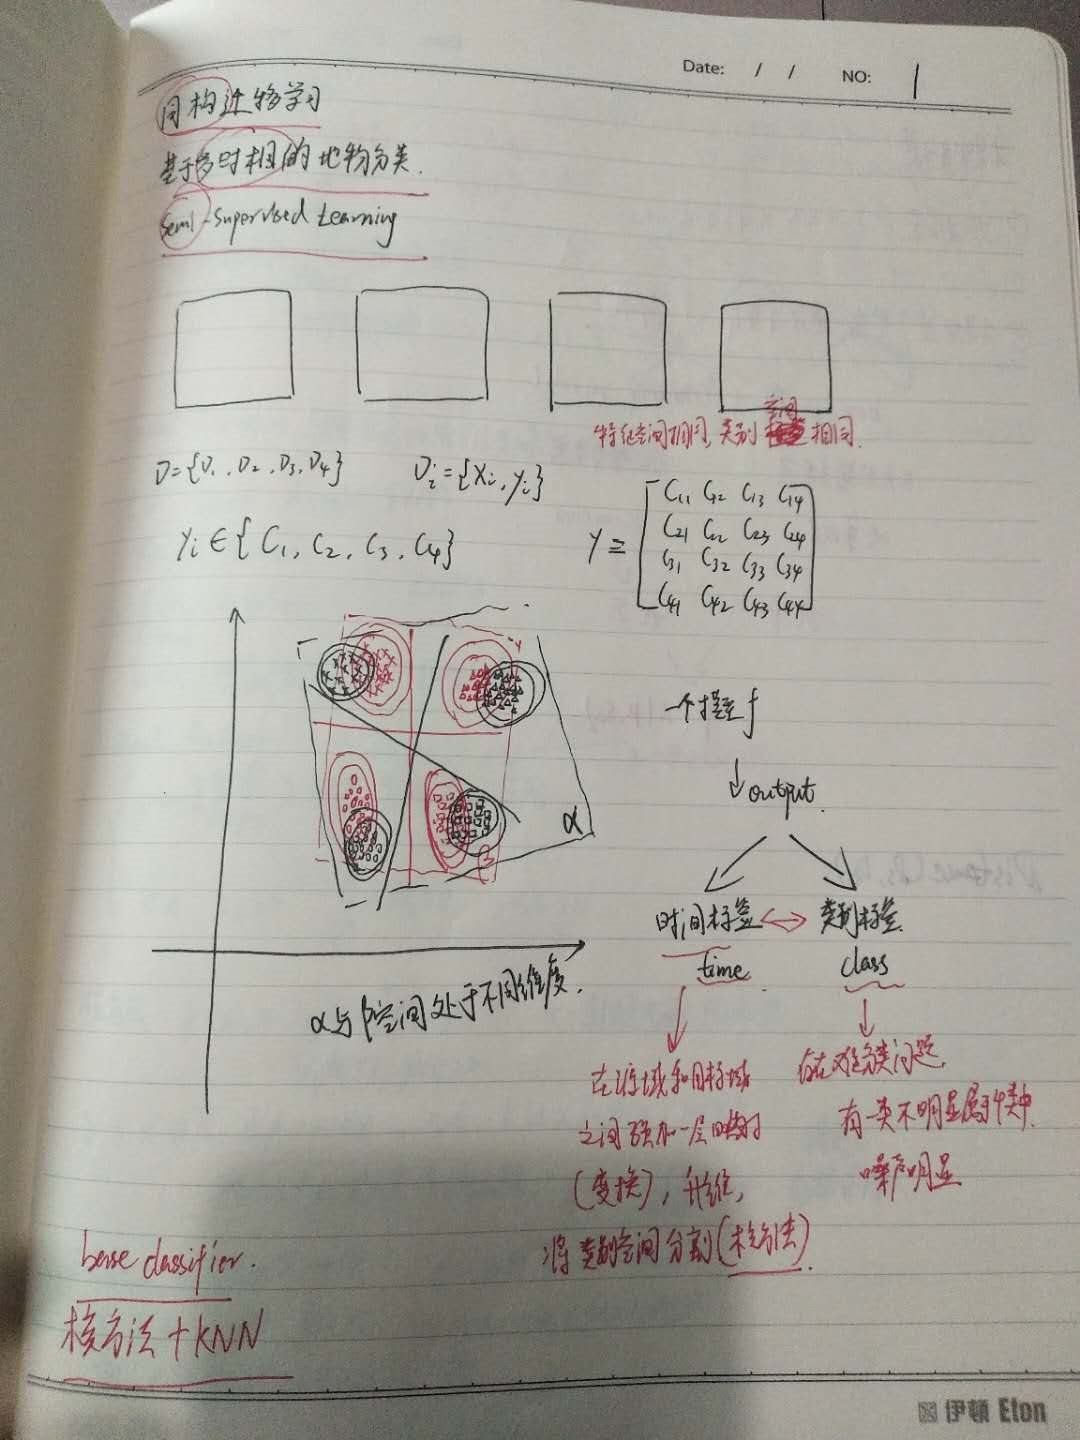 Date: / / NO: 1
同构迁移学习
基于多时相的地物分类.
Semi-Supervised Learning
特征空间相同, 类别空间相同.
D={D1, D2, D3, D4} Di={Xi, yi}
yi∈{C1, C2, C3, C4}
Y =
C11 C12 C13 C14
C21 C22 C23 C24
C31 C32 C33 C34
C41 C42 C43 C44
α
β
一个模型 f
↓output.
时间标签 ↔ 类别标签
time class
α与β空间处于不同维度.
在源域和目标域
之间强加一层映射
(变换), 升维,
将类别空间分割(核方法).
存在难分类问题.
有一类不明显属于4类中.
噪声明显
base classifier.
核方法+KNN
伊顿 Eton